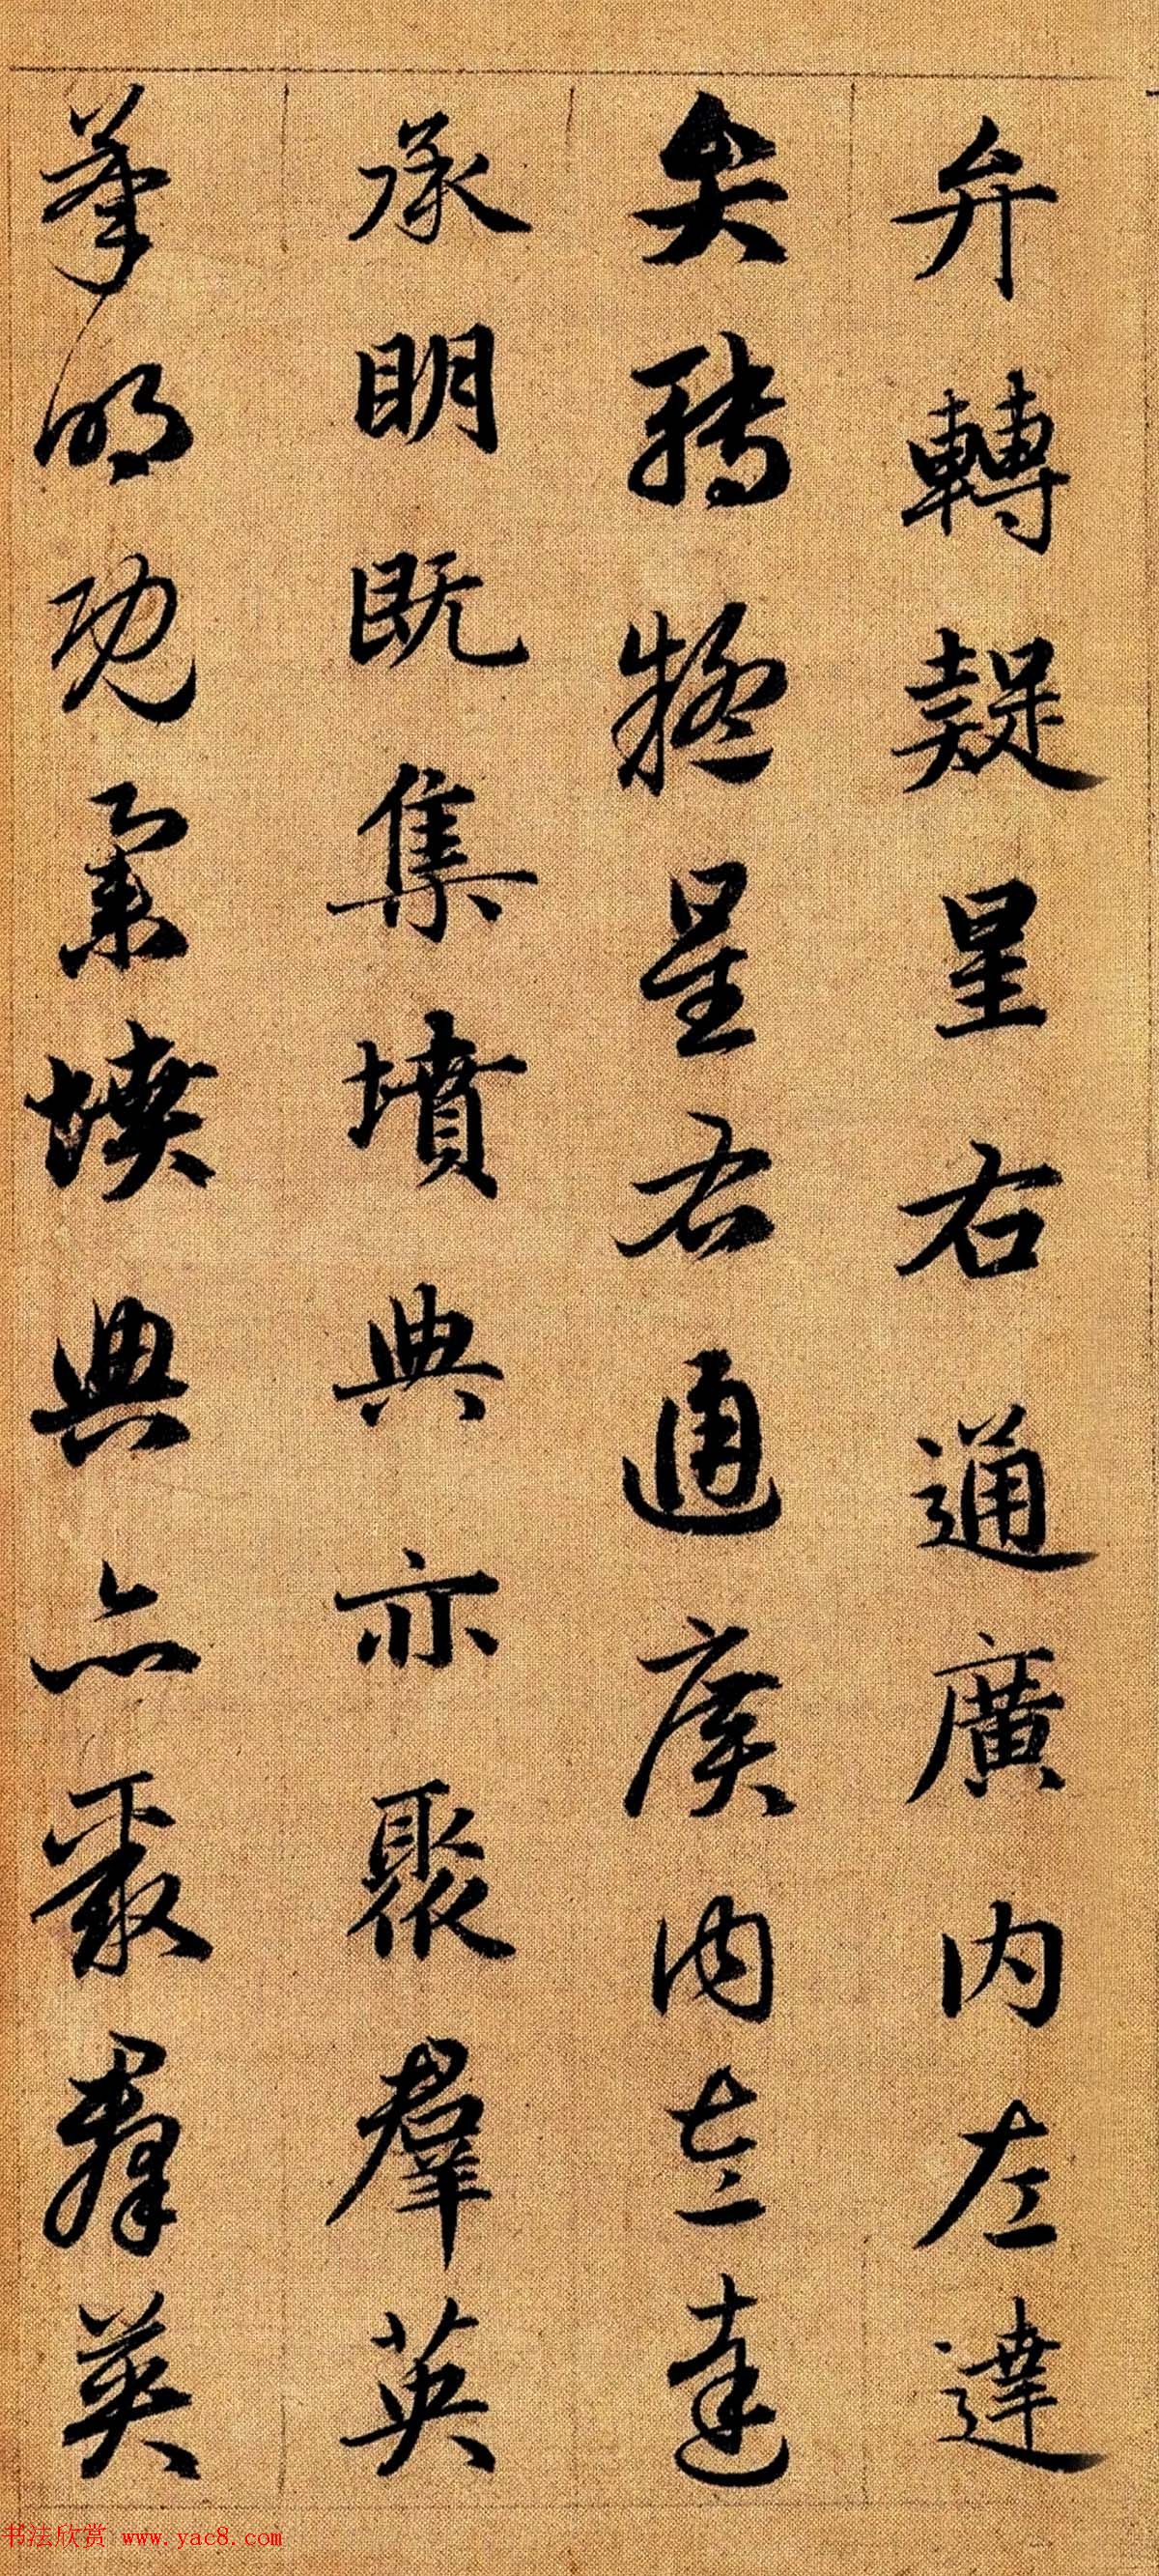 弁轉疑星右通廣内左達
弁轉疑星右通廣内左達
承明既集墳典亦聚群英
承明既集墳典亦聚群英
书法欣赏 www.yac8.com